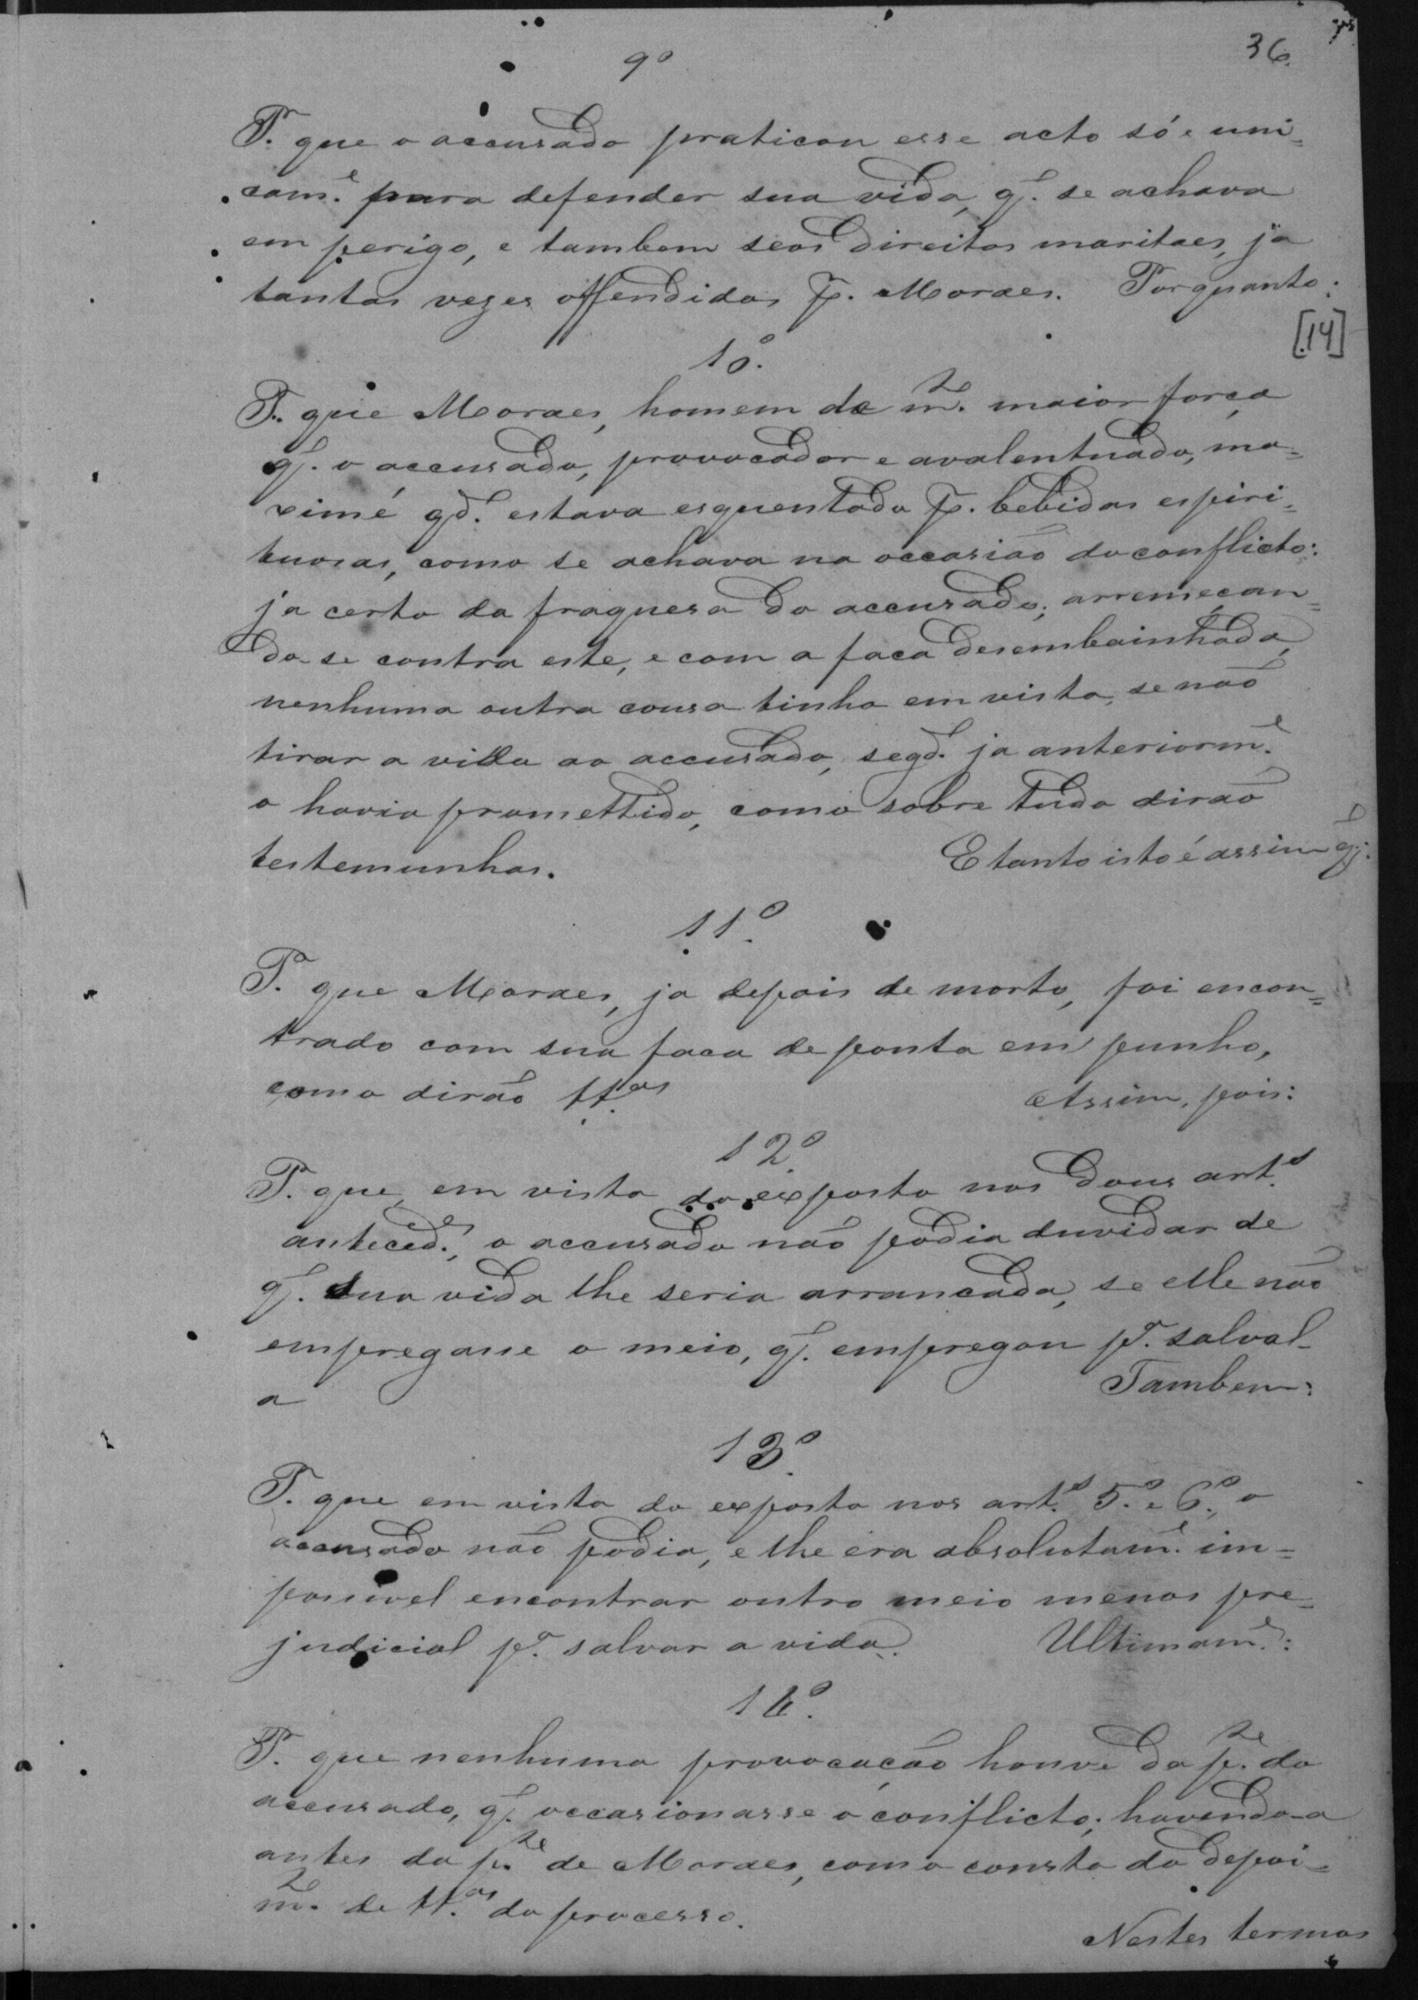 36.
9º
P. que o accusado praticou esse acto só e uni=
cam.e para defender sua vida, q. se achava
em perigo, e tambem seos direitos maritaes, ja
tantas vezes offendidos p. Moraes. Porquanto:
[14]
10º.
P. que Moraes, homem de m.to maior força
q. o accusado, provocador e avalentuado, ma=
ximé qd.o estava esquentado p. bebidas espiri=
tuosas, como se achava na occasião do conflicto:
ja certo da fraquesa do accusado; arremeçan=
do-se contra este, e com a faca desembainhada,
nenhuma outra cousa tinha em vista, se não
tirar a vida ao accusado, segd.o ja anteriorm.e
o havia promettido, como sobre tudo dirão
testemunhas. E tanto isto é assim q.:
11º.
P. que Moraes, ja depois de morto, foi encon=
trado com sua faca de ponta em punho,
como dirão tt.as Assim, pois:
12º.
P. que, em vista do exposto nos dous art.s
anteced.es, o accusado não podia duvidar de
q. sua vida lhe seria arrancada, se elle não
empregasse o meio, q. empregou p.a salval-
a Tambem:
13º.
P. que em vista do exposto nos art.s 5.º e 6.º, o
accusado não podia, e lhe era absolutam.e im=
possivel encontrar outro meio menos pre=
judicial p.a salvar a vida. Ultimam.e:
14º.
P. que nenhuma provocação houve da p.te do
accusado, q. occasionasse o conflicto; havendo-a
antes da p.te de Moraes, como consta do depoi=
m.to de tt.as do processo.
Nestes termos